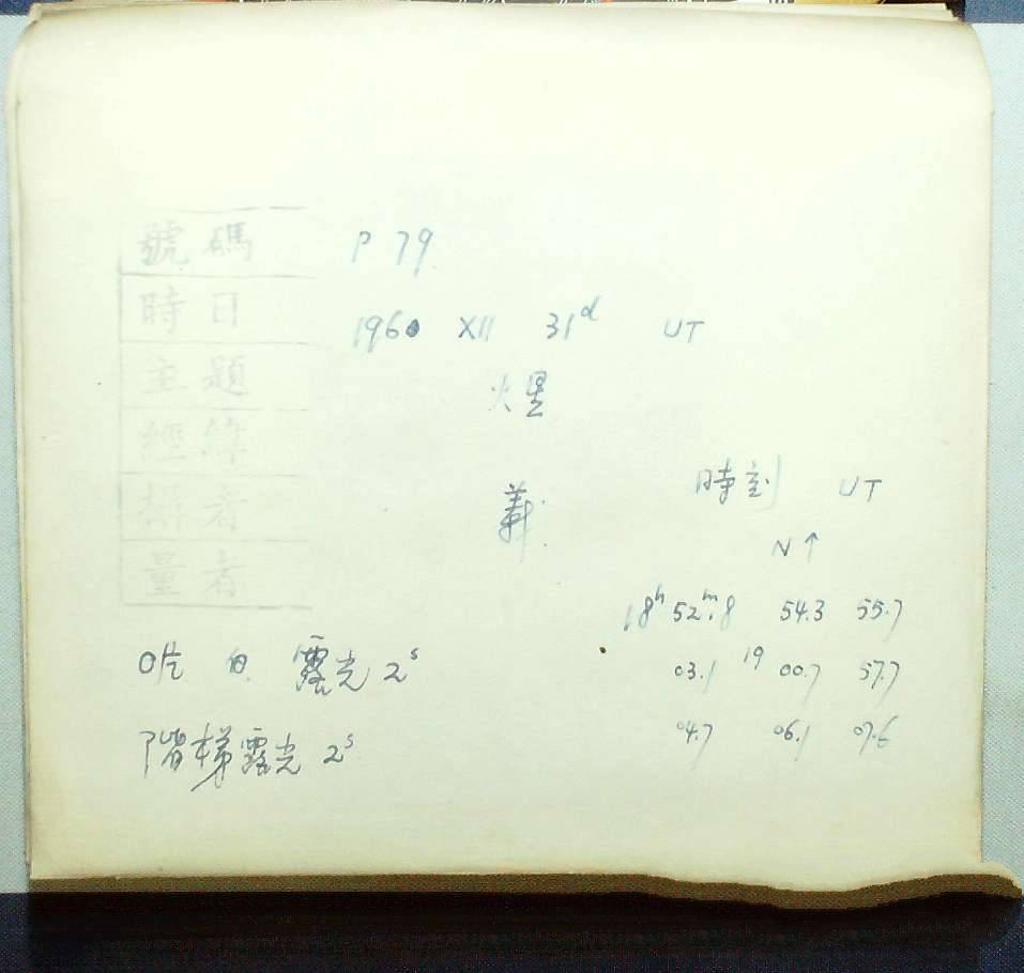 號碼 P 79
時日 1960 XII 31d UT
主題 火星
經緯
攝者 蔡
時刻 UT
量者
N↑
18h 52m.8 54.3 55.7
03.1 19 00.7 57.7
04.7 06.1 07.6
露光 2s
階梯露光 2s